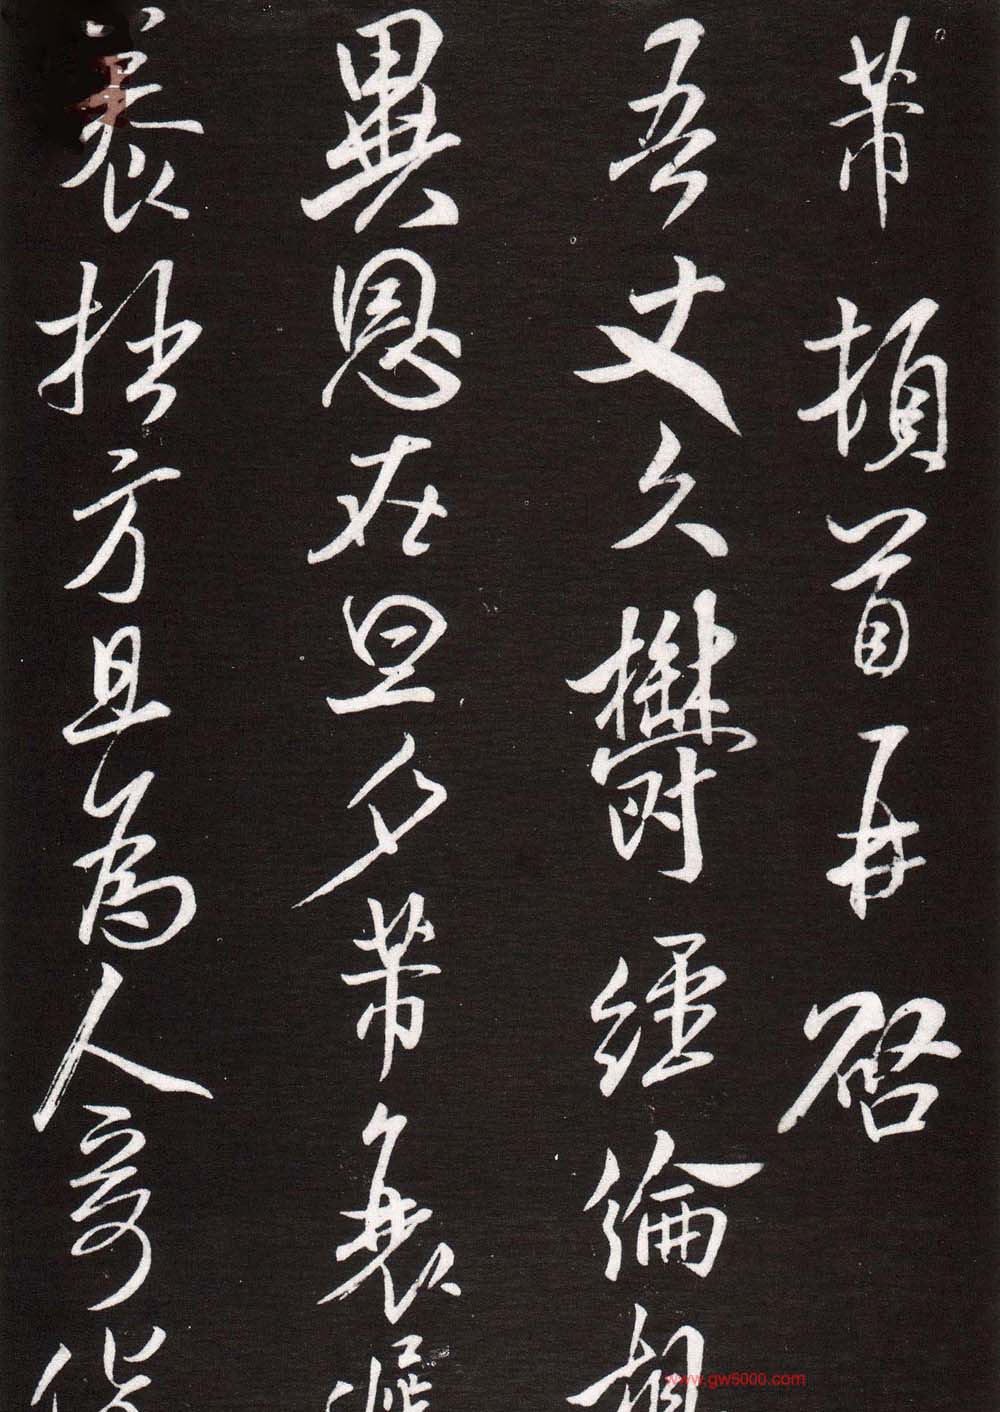 芾頓首再啓
吾丈久鬱經綸
異恩在旦夕芾衰
養拙方且為人奇
www.gw5000.com